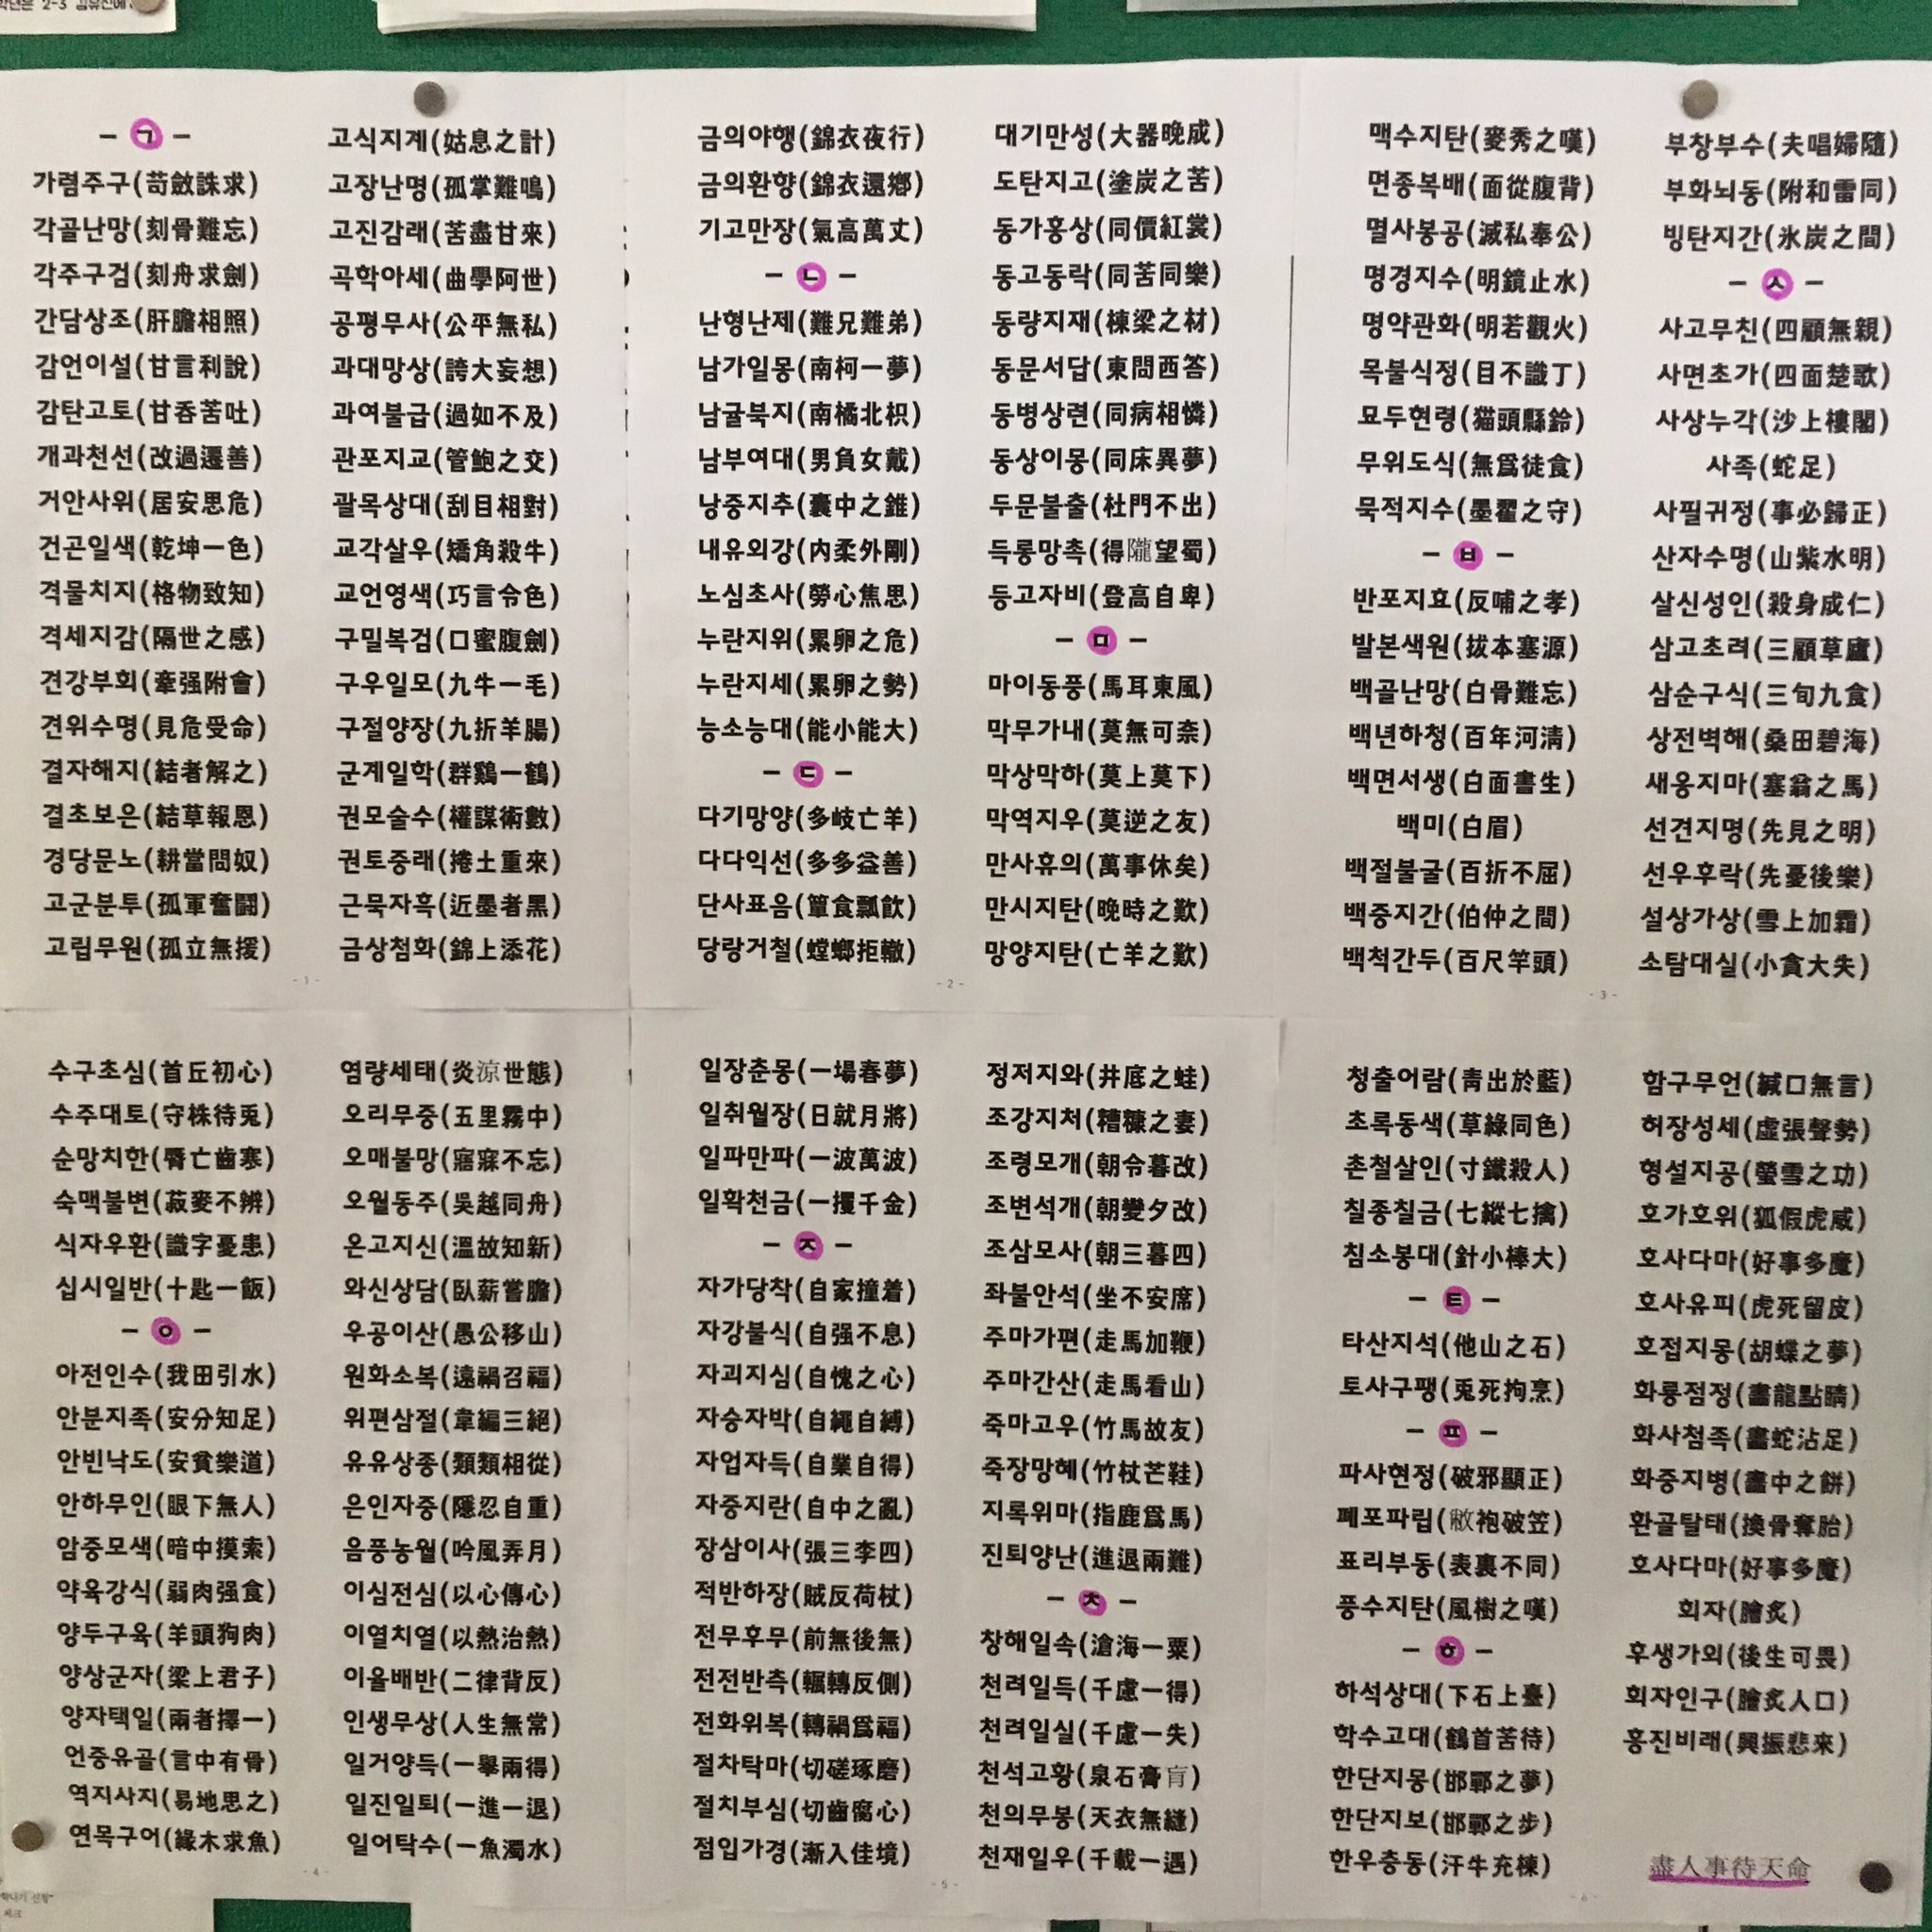 - ㄱ -
가렴주구(苛斂誅求)
각골난망(刻骨難忘)
각주구검(刻舟求劍)
간담상조(肝膽相照)
감언이설(甘言利說)
감탄고토(甘呑苦吐)
개과천선(改過遷善)
거안사위(居安思危)
건곤일색(乾坤一色)
격물치지(格物致知)
격세지감(隔世之感)
견강부회(牽强附會)
견위수명(見危受命)
결자해지(結者解之)
결초보은(結草報恩)
경당문노(耕當問奴)
고군분투(孤軍奮鬪)
고립무원(孤立無援)
고식지계(姑息之計)
고장난명(孤掌難鳴)
고진감래(苦盡甘來)
곡학아세(曲學阿世)
공평무사(公平無私)
과대망상(誇大妄想)
과여불급(過如不及)
관포지교(管鮑之交)
괄목상대(刮目相對)
교각살우(矯角殺牛)
교언영색(巧言令色)
구밀복검(口蜜腹劍)
구우일모(九牛一毛)
구절양장(九折羊腸)
군계일학(群鷄一鶴)
권모술수(權謀術數)
권토중래(捲土重來)
근묵자흑(近墨者黑)
금상첨화(錦上添花)
- 1 -
금의야행(錦衣夜行)
금의환향(錦衣還鄕)
기고만장(氣高萬丈)
- ㄴ -
난형난제(難兄難弟)
남가일몽(南柯一夢)
남귤북지(南橘北枳)
남부여대(男負女戴)
낭중지추(囊中之錐)
내유외강(内柔外剛)
노심초사(勞心焦思)
누란지위(累卵之危)
누란지세(累卵之勢)
능소능대(能小能大)
- ㄷ -
다기망양(多岐亡羊)
다다익선(多多益善)
단사표음(簞食瓢飮)
당랑거철(螳螂拒轍)
대기만성(大器晩成)
도탄지고(塗炭之苦)
동가홍상(同價紅裳)
동고동락(同苦同樂)
동량지재(棟梁之材)
동문서답(東問西答)
동병상련(同病相憐)
동상이몽(同床異夢)
두문불출(杜門不出)
득롱망촉(得隴望蜀)
등고자비(登高自卑)
- ㅁ -
마이동풍(馬耳東風)
막무가내(莫無可奈)
막상막하(莫上莫下)
막역지우(莫逆之友)
만사휴의(萬事休矣)
만시지탄(晩時之歎)
망양지탄(亡羊之歎)
- 2 -
맥수지탄(麥秀之嘆)
면종복배(面從腹背)
멸사봉공(滅私奉公)
명경지수(明鏡止水)
명약관화(明若觀火)
목불식정(目不識丁)
묘두현령(猫頭縣鈴)
무위도식(無爲徒食)
묵적지수(墨翟之守)
- ㅂ -
반포지효(反哺之孝)
발본색원(拔本塞源)
백골난망(白骨難忘)
백년하청(百年河淸)
백면서생(白面書生)
백미(白眉)
백절불굴(百折不屈)
백중지간(伯仲之間)
백척간두(百尺竿頭)
부창부수(夫唱婦隨)
부화뇌동(附和雷同)
빙탄지간(氷炭之間)
- ㅅ -
사고무친(四顧無親)
사면초가(四面楚歌)
사상누각(沙上樓閣)
사족(蛇足)
사필귀정(事必歸正)
산자수명(山紫水明)
살신성인(殺身成仁)
삼고초려(三顧草廬)
삼순구식(三旬九食)
상전벽해(桑田碧海)
새옹지마(塞翁之馬)
선견지명(先見之明)
선우후락(先憂後樂)
설상가상(雪上加霜)
소탐대실(小貪大失)
- 3 -
수구초심(首丘初心)
수주대토(守株待兎)
순망치한(脣亡齒寒)
숙맥불변(菽麥不辨)
식자우환(識字憂患)
십시일반(十匙一飯)
- ㅇ -
아전인수(我田引水)
안분지족(安分知足)
안빈낙도(安貧樂道)
안하무인(眼下無人)
암중모색(暗中摸索)
약육강식(弱肉强食)
양두구육(羊頭狗肉)
양상군자(梁上君子)
양자택일(兩者擇一)
언중유골(言中有骨)
역지사지(易地思之)
연목구어(緣木求魚)
염량세태(炎涼世態)
오리무중(五里霧中)
오매불망(寤寐不忘)
오월동주(吳越同舟)
온고지신(溫故知新)
와신상담(臥薪嘗膽)
우공이산(愚公移山)
원화소복(遠禍召福)
위편삼절(韋編三絕)
유유상종(類類相從)
은인자중(隱忍自重)
음풍농월(吟風弄月)
이심전심(以心傳心)
이열치열(以熱治熱)
이율배반(二律背反)
인생무상(人生無常)
일거양득(一擧兩得)
일진일퇴(一進一退)
일어탁수(一魚濁水)
- 4 -
일장춘몽(一場春夢)
일취월장(日就月將)
일파만파(一波萬波)
일확천금(一攫千金)
- ㅈ -
자가당착(自家撞着)
자강불식(自强不息)
자괴지심(自愧之心)
자승자박(自繩自縛)
자업자득(自業自得)
자중지란(自中之亂)
장삼이사(張三李四)
적반하장(賊反荷杖)
전무후무(前無後無)
전전반측(輾轉反側)
전화위복(轉禍爲福)
절차탁마(切磋琢磨)
절치부심(切齒腐心)
점입가경(漸入佳境)
정저지와(井底之蛙)
조강지처(糟糠之妻)
조령모개(朝令暮改)
조변석개(朝變夕改)
조삼모사(朝三暮四)
좌불안석(坐不安席)
주마가편(走馬加鞭)
주마간산(走馬看山)
죽마고우(竹馬故友)
죽장망혜(竹杖芒鞋)
지록위마(指鹿爲馬)
진퇴양난(進退兩難)
- ㅊ -
창해일속(滄海一粟)
천려일득(千慮一得)
천려일실(千慮一失)
천석고황(泉石膏肓)
천의무봉(天衣無縫)
천재일우(千載一遇)
- 5 -
청출어람(靑出於藍)
초록동색(草綠同色)
촌철살인(寸鐵殺人)
칠종칠금(七縱七擒)
침소봉대(針小棒大)
- ㅌ -
타산지석(他山之石)
토사구팽(兎死拘烹)
- ㅍ -
파사현정(破邪顯正)
폐포파립(敝袍破笠)
표리부동(表裏不同)
풍수지탄(風樹之嘆)
- ㅎ -
하석상대(下石上臺)
학수고대(鶴首苦待)
한단지몽(邯鄲之夢)
한단지보(邯鄲之步)
한우충동(汗牛充棟)
함구무언(緘口無言)
허장성세(虛張聲勢)
형설지공(螢雪之功)
호가호위(狐假虎威)
호사다마(好事多魔)
호사유피(虎死留皮)
호접지몽(胡蝶之夢)
화룡점정(畵龍點睛)
화사첨족(畵蛇沾足)
화중지병(畵中之餠)
환골탈태(換骨奪胎)
호사다마(好事多魔)
회자(膾炙)
후생가외(後生可畏)
회자인구(膾炙人口)
흥진비래(興振悲来)
盡人事待天命
- 6 -